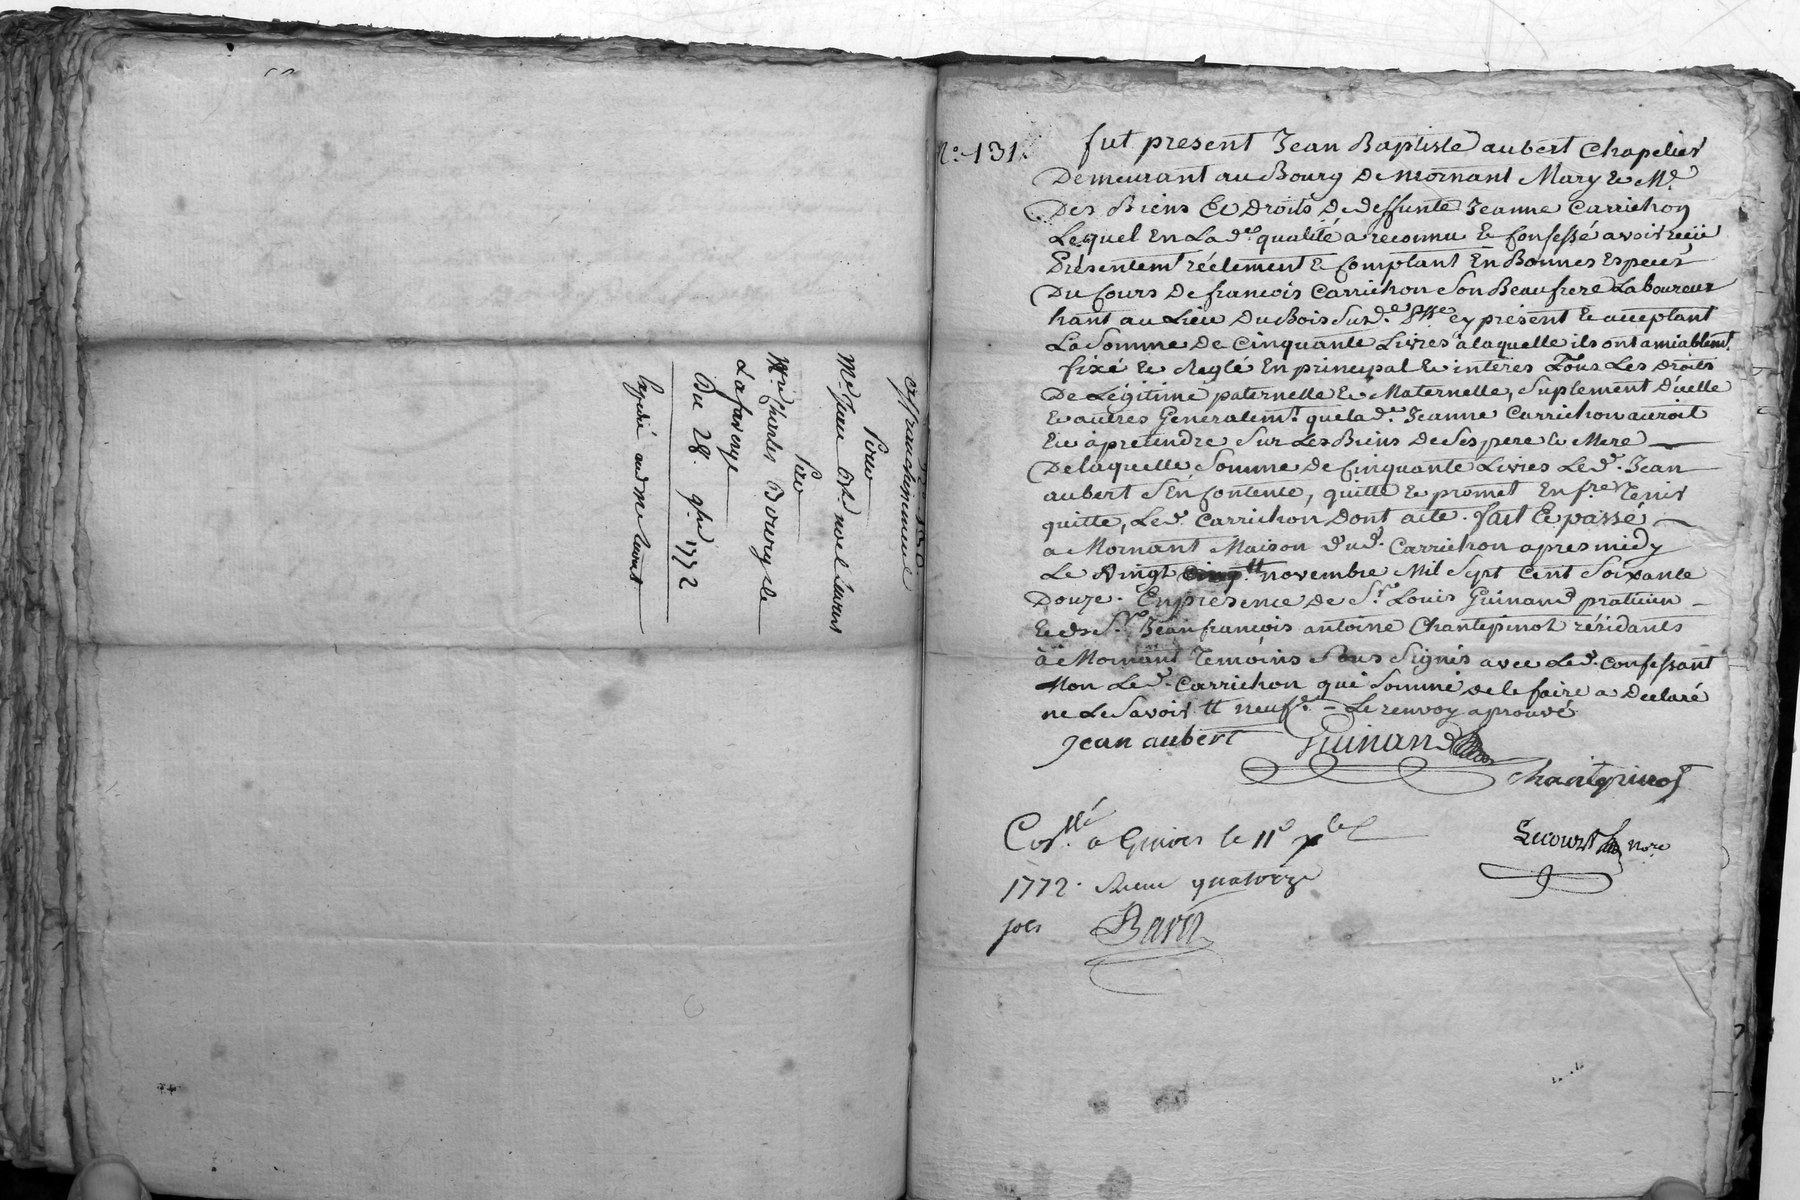 affranchissement
Pour
Me. Jean Bte. noel
Pere
Mre. Charles
Lafaverge
Du 28. 9bre 1772
Expedié
N:o 131.
fut present Jean Baptiste aubert Chapelier
Demeurant au Bourg De mornant Mary Et Me.
Des Biens Et Droits De deffunte Jeanne Carrichon
Lequel En La de. qualité a reconnu Et Confessé avoir reçü
Présentemt réelement Et Comptant En Bonnes Especes
Du Cours De francois Carrichon Son Beaufrere Laboureur
hant au Lieu Du Bois Susde. Psse cy présent Et acceptant
La Somme De Cinquante Livres a laquelle ils ont amiablemt.
fixé Et Reglé En principal Et interes Tous Les Droits
De Légitime paternelle Et Maternelle, Suplement D'icelle
Et autres Generalemt. que la de. Jeanne Carrichon auroit
Eu à pretendre Sur Les Biens De Ses pere Et Mere
De laquelle Somme De Cinquante Livres Le d. Jean
aubert S'En Contente, quitte Et promet En fre Tenir
quitte, Le d. Carrichon Dont acte. fait Et passé
a Mornant Maison Du d. Carrichon apres midy
Le Vingt cinq tt novembre Mil Sept Cent Soixante
Douze. En présence De Sr. Louis Guinand praticien
Et De Sr. Jean francois antoine Chantepinot résidants
à Mornant Temoins Sous Signés avec Le d. Confessant
Non Le d. Carrichon qui Sommé de le faire a Declaré
ne Le Savoir tt neuf. - Le renvoy aprouvé
Jean aubert Guinand
Chantepinot
Conllé a Givors le 11e xbre
Lecourt Nore
1772. Reçu quatorze
sols Barin